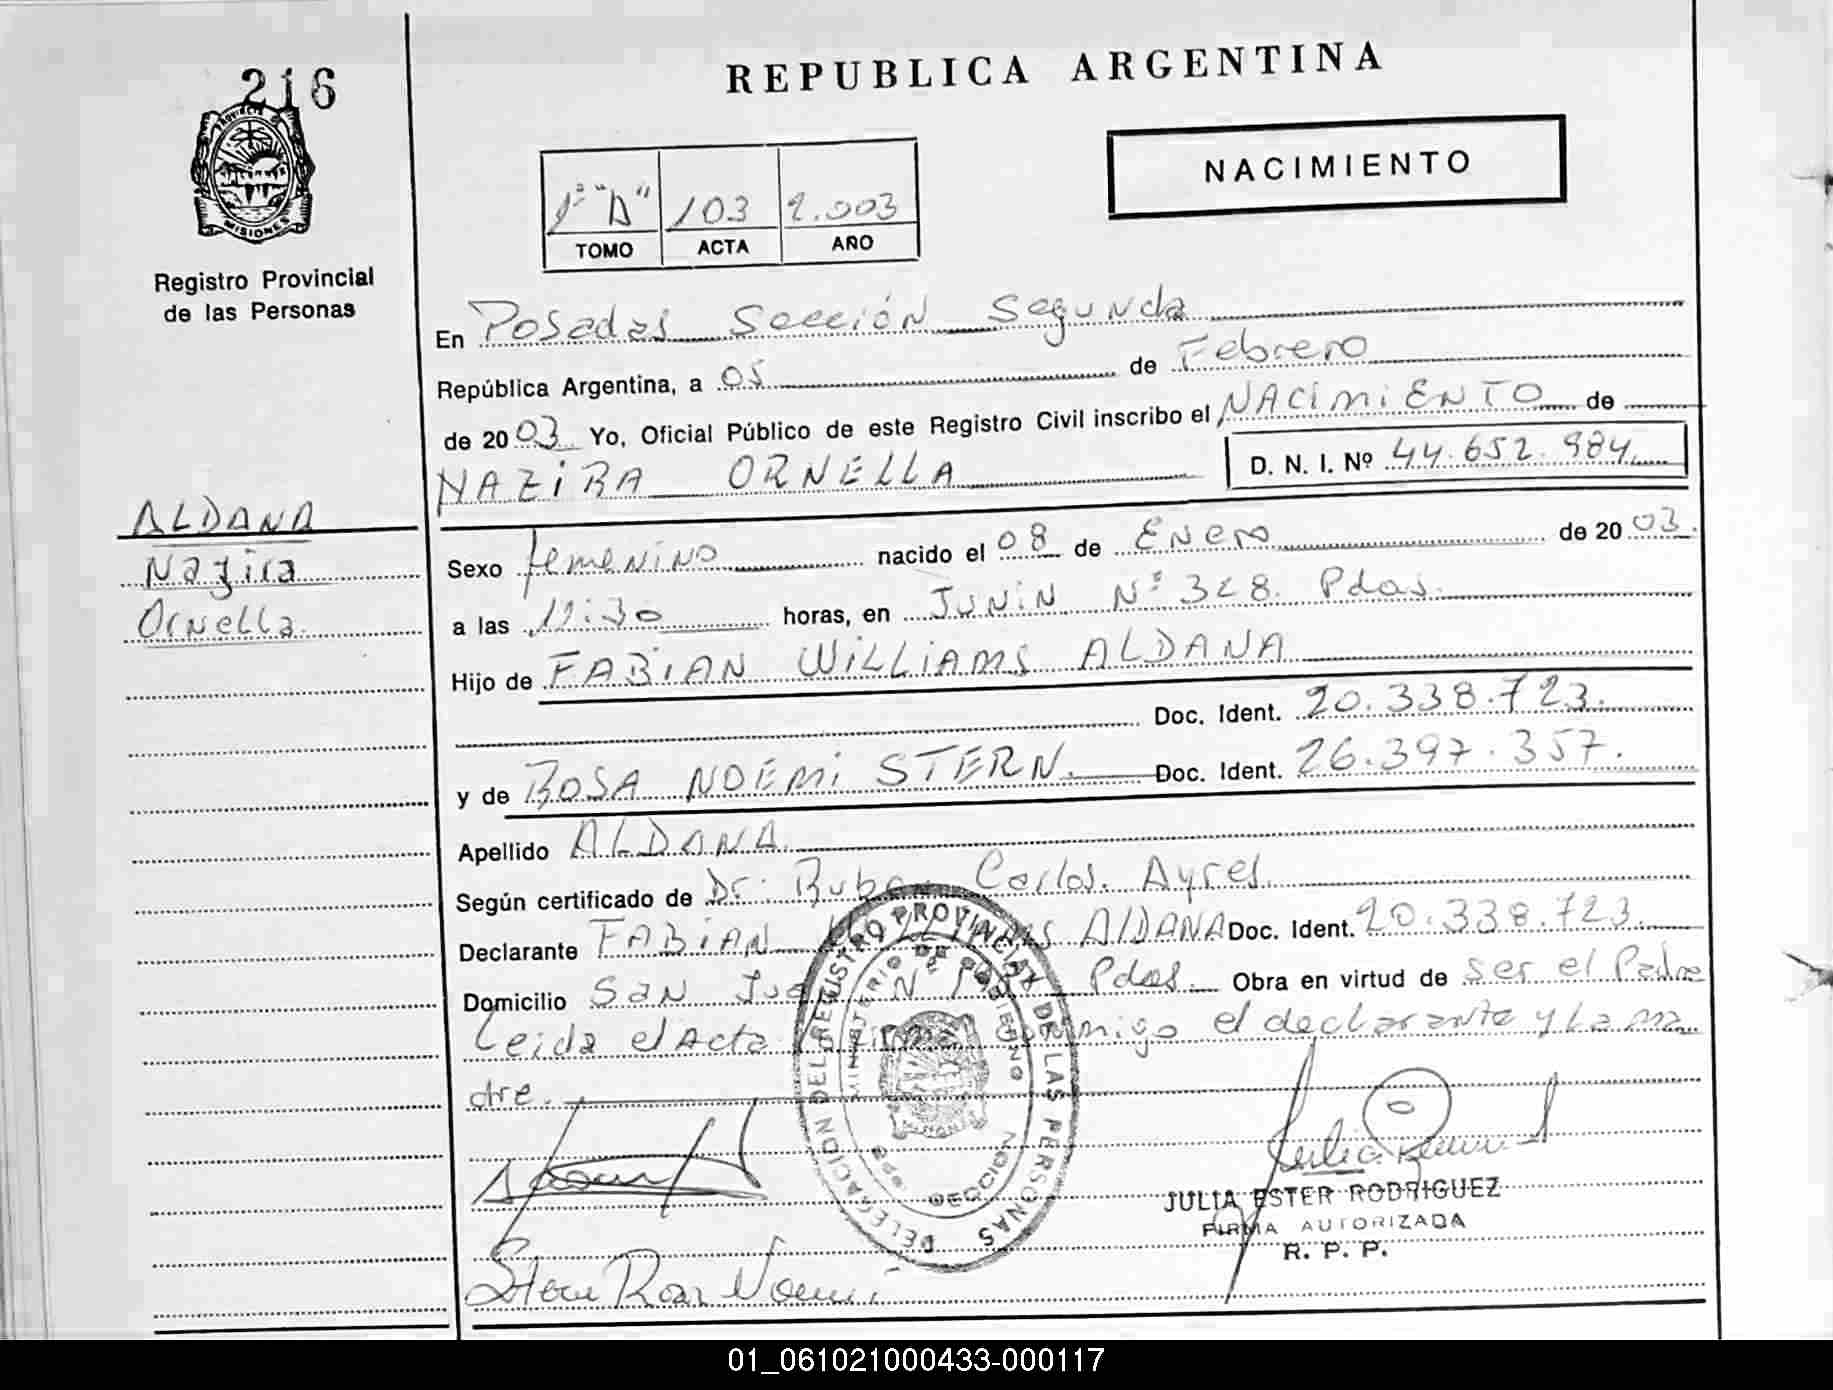 216
REPUBLICA ARGENTINA
PROVINCIA DE
MISIONES
Registro Provincial
de las Personas
1º "D" 103 2.003
TOMO ACTA AÑO
NACIMIENTO
En Posadas Sección Segunda
República Argentina, a 05 de Febrero
de 2003 Yo, Oficial Público de este Registro Civil inscribo el NACIMIENTO de
NAZIRA ORNELLA D. N. I. Nº 44.652.984
ALDANA
Nazira
Ornella.
Sexo femenino nacido el 08 de Enero de 2003.
a las 11:30 horas, en JUNIN Nº 328. Pdas.
Hijo de FABIAN WILLIAMS ALDANA
Doc. Ident. 20.338.723.
y de ROSA NOEMI STERN. Doc. Ident. 26.397.357.
Apellido ALDANA
Según certificado de Dr. Ruben Carlos Ayres.
Declarante FABIAN WILLIAMS ALDANA Doc. Ident. 20.338.723.
Domicilio San Juan N Pdas. Obra en virtud de ser el Padre
Leida el Acta la firma conmigo el declarante y la ma
dre.
DELEGACION DEL REGISTRO PROVINCIAL DE LAS PERSONAS
MINISTERIO DE GOBIERNO
SECCION
MISIONES
JULIA ESTER RODRIGUEZ
FIRMA AUTORIZADA
R. P. P.
Stern Rosa Noemi
01_061021000433-000117